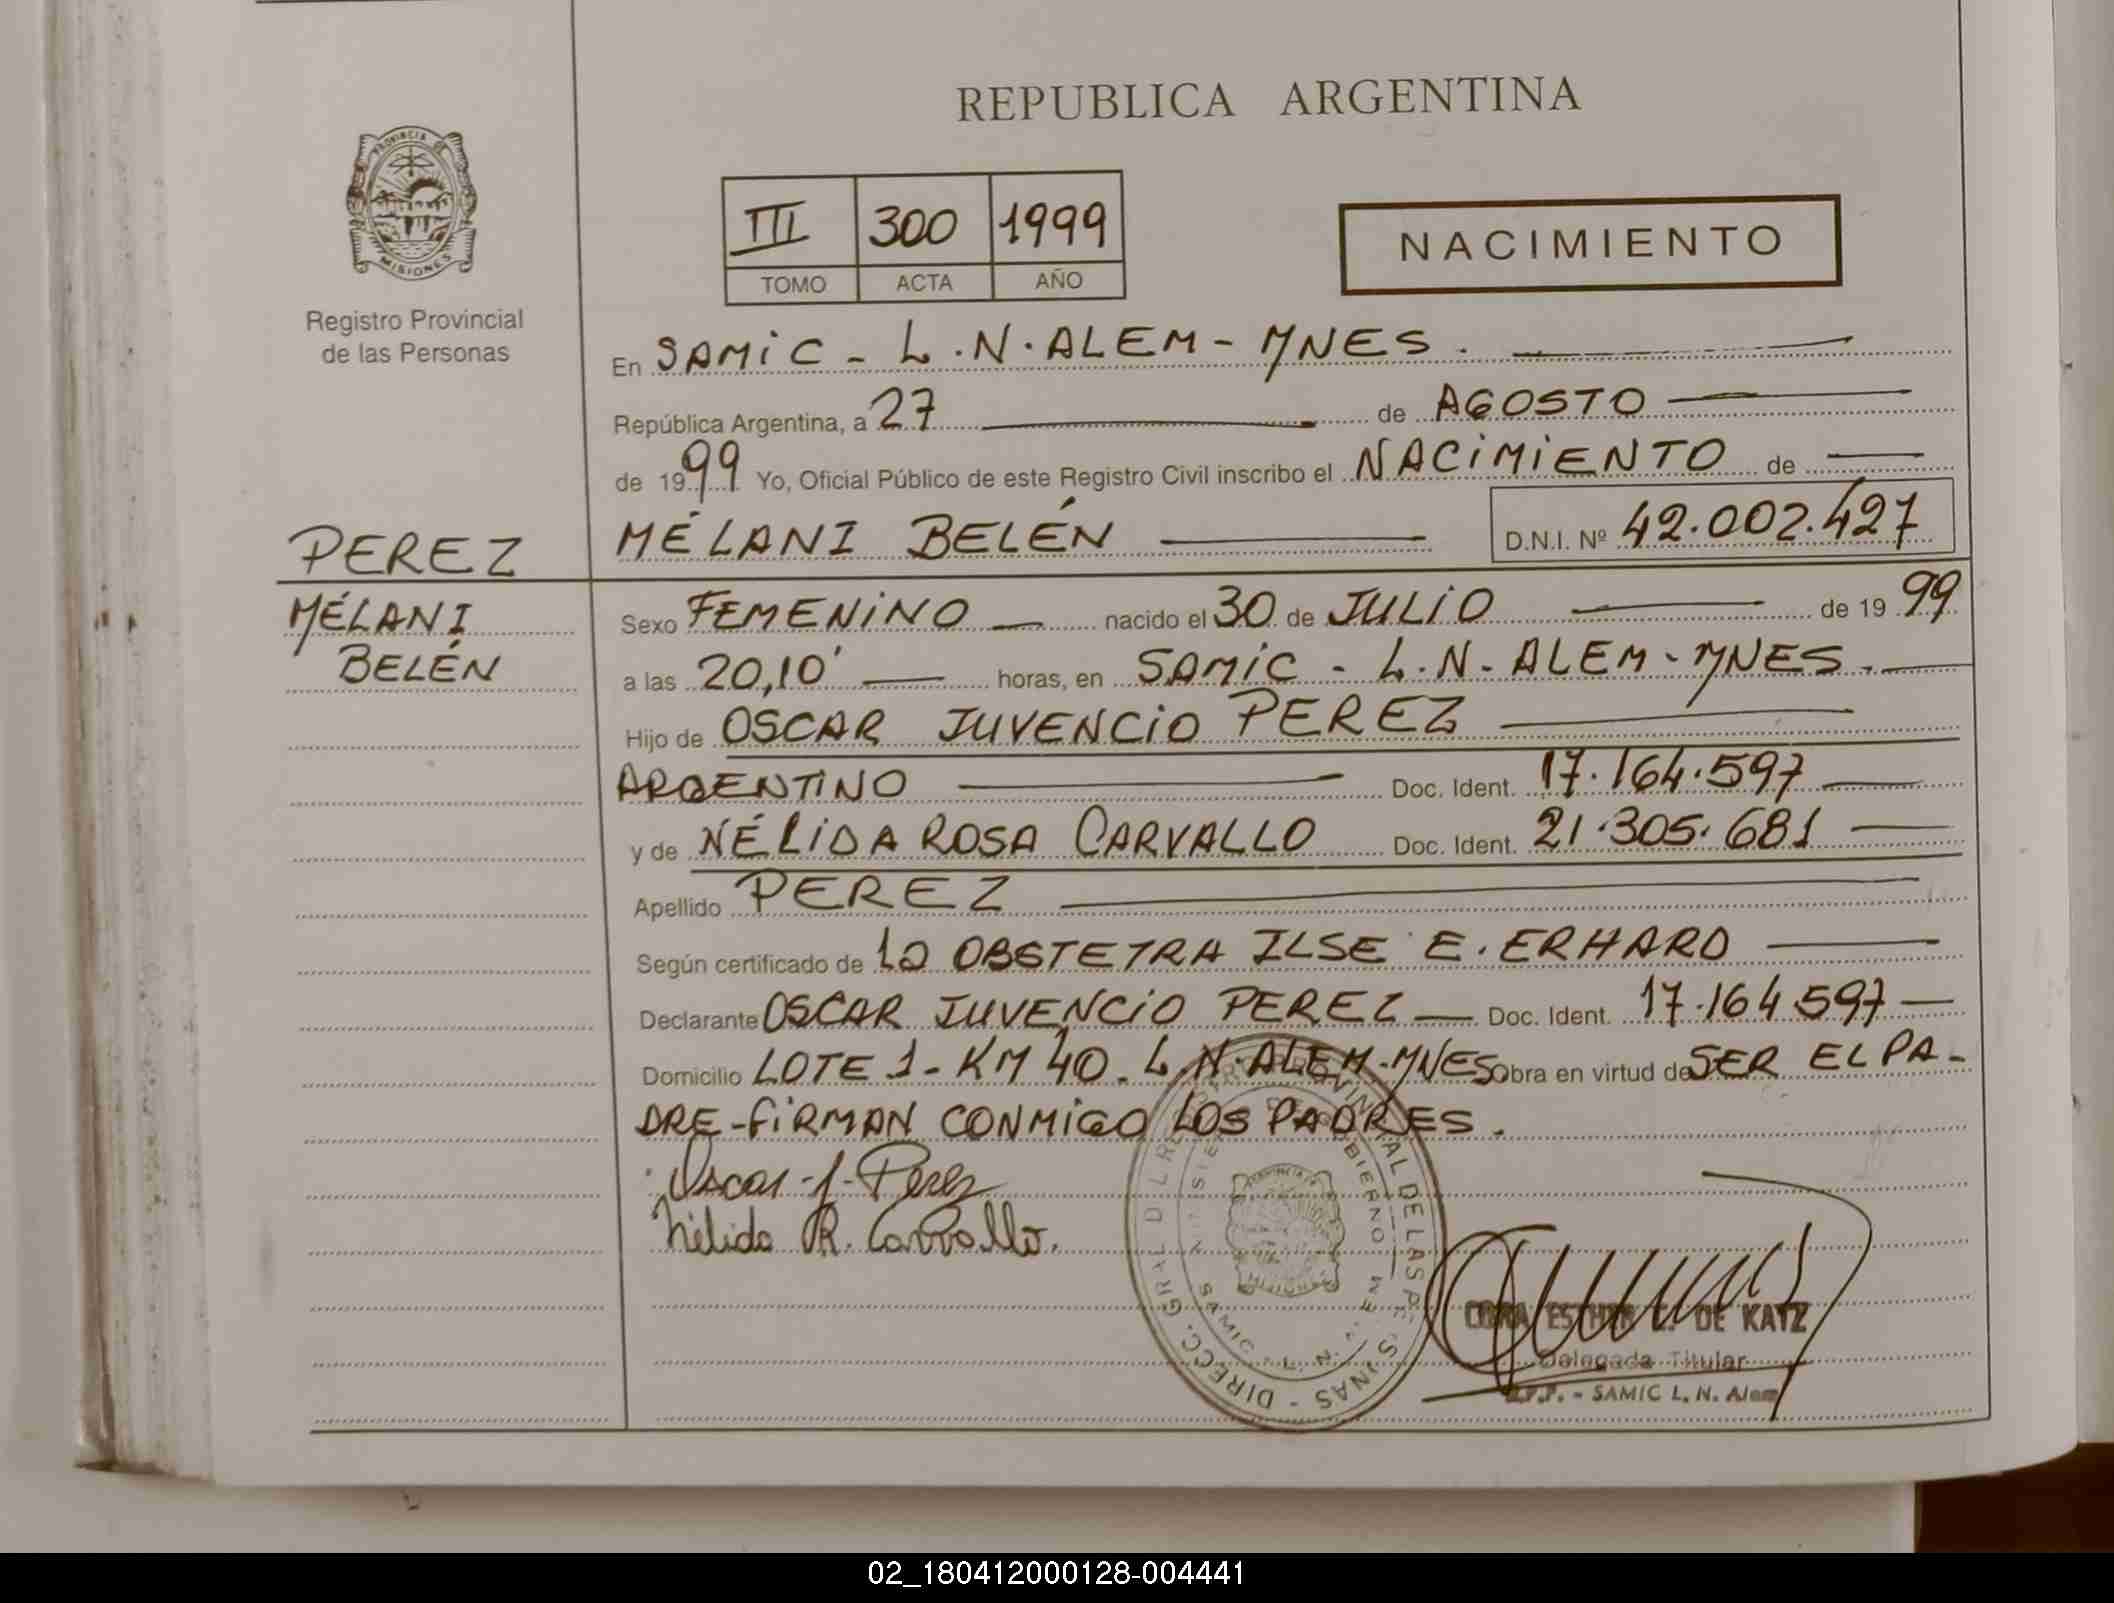 REPUBLICA ARGENTINA
PROVINCIA DE
MISIONES
Registro Provincial
de las Personas
III 300 1999
TOMO ACTA AÑO
NACIMIENTO
En SAMIC - L.N. ALEM - MNES.
República Argentina, a 27 de AGOSTO
de 1999 Yo, Oficial Público de este Registro Civil inscribo el NACIMIENTO de
PEREZ
MÉLANI BELÉN D.N.I. Nº 42.002.427
MÉLANI
BELÉN
Sexo FEMENINO nacido el 30 de JULIO de 1999
a las 20,10' horas, en SAMIC - L.N. ALEM - MNES.
Hijo de OSCAR JUVENCIO PEREZ
ARGENTINO Doc. Ident. 17.164.597
y de NÉLIDA ROSA CARVALLO Doc. Ident. 21.305.681
Apellido PEREZ
Según certificado de LA OBSTETRA ILSE E. ERHARD
Declarante OSCAR JUVENCIO PEREZ Doc. Ident. 17.164.597
Domicilio LOTE 1 - KM 40. L.N. ALEM - MNES obra en virtud de SER EL PA-
DRE - FIRMAN CONMIGO LOS PADRES.
Oscar J. Perez
Nélida R. Carvallo.
ESTHER C. DE KATZ
Delegada Titular
R.P.P. - SAMIC L. N. Alem
02_180412000128-004441